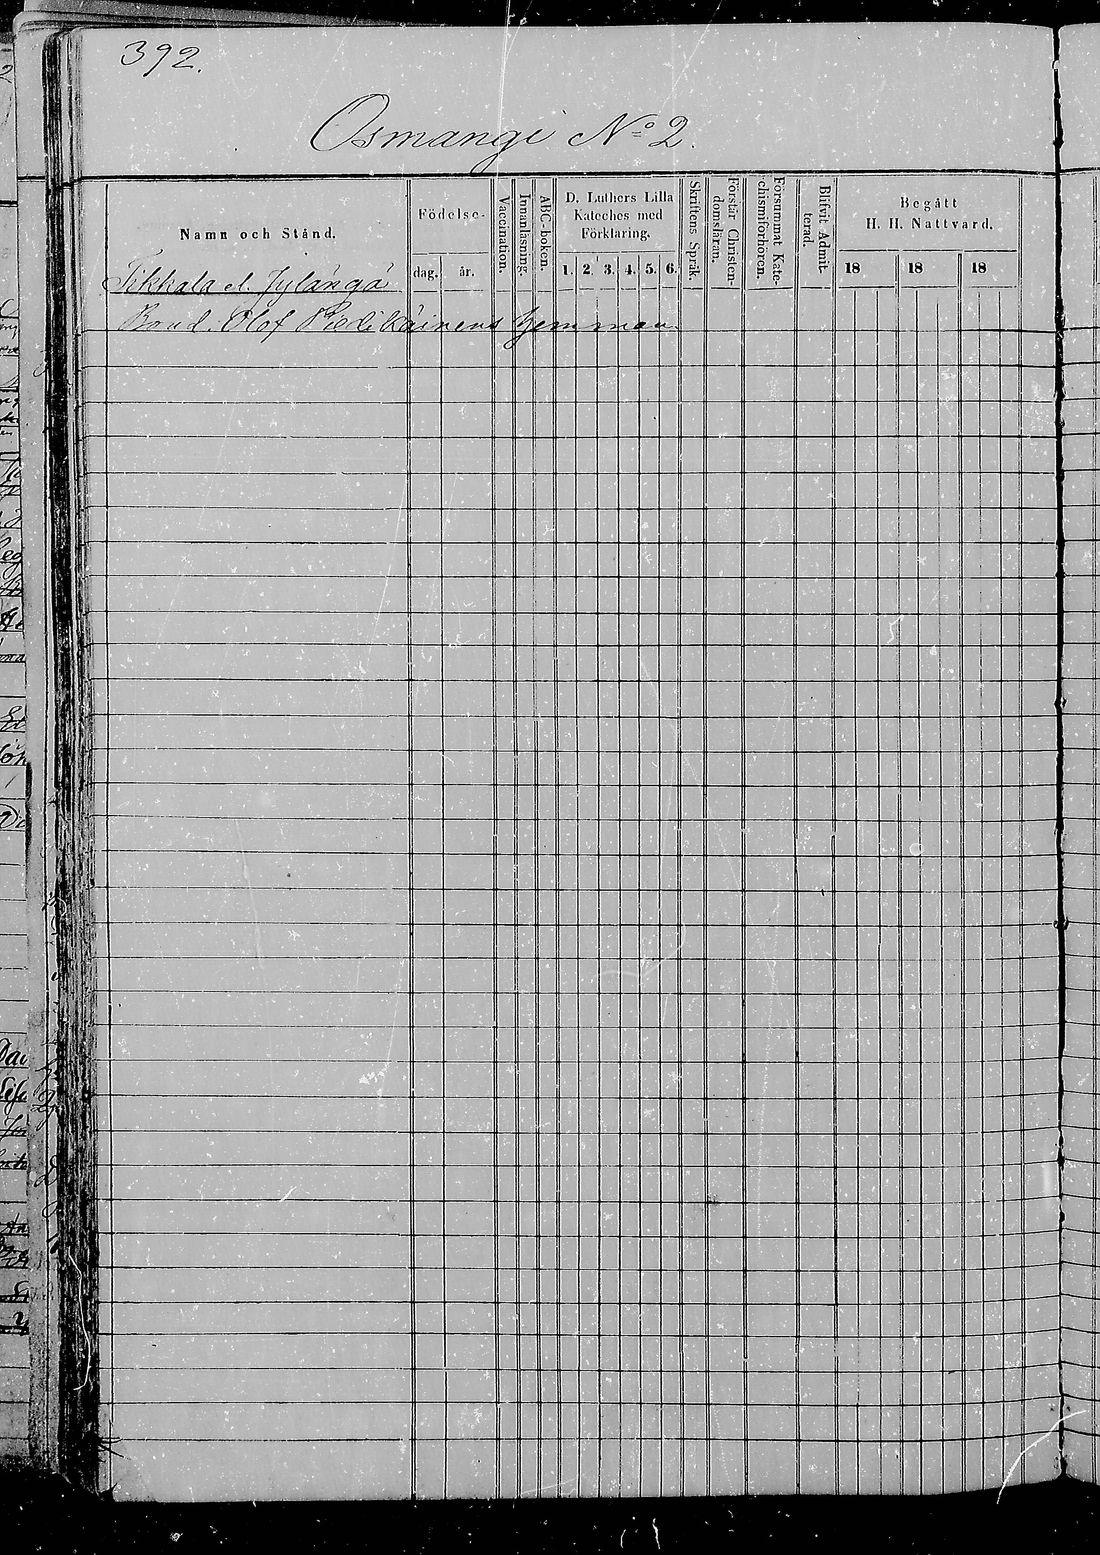 392.
Osmangi No 2.
Namn och Stånd.
Födelse-
dag. år.
Vaccernation.
Innanläsning.
ABC-boken.
D. Luthers Lilla
Kateches med
Förklaring.
1. 2. 3. 4. 5. 6.
Skriftens Språk.
Förstår Christen-
domsläran.
Försummat Kate-
chismiförhören.
Blifvit Admit-
terad.
Begått
H. H. Nattvard.
18 18 18
Tikkala el. Jylängä
Bond. Olof Piedikäinens hemman